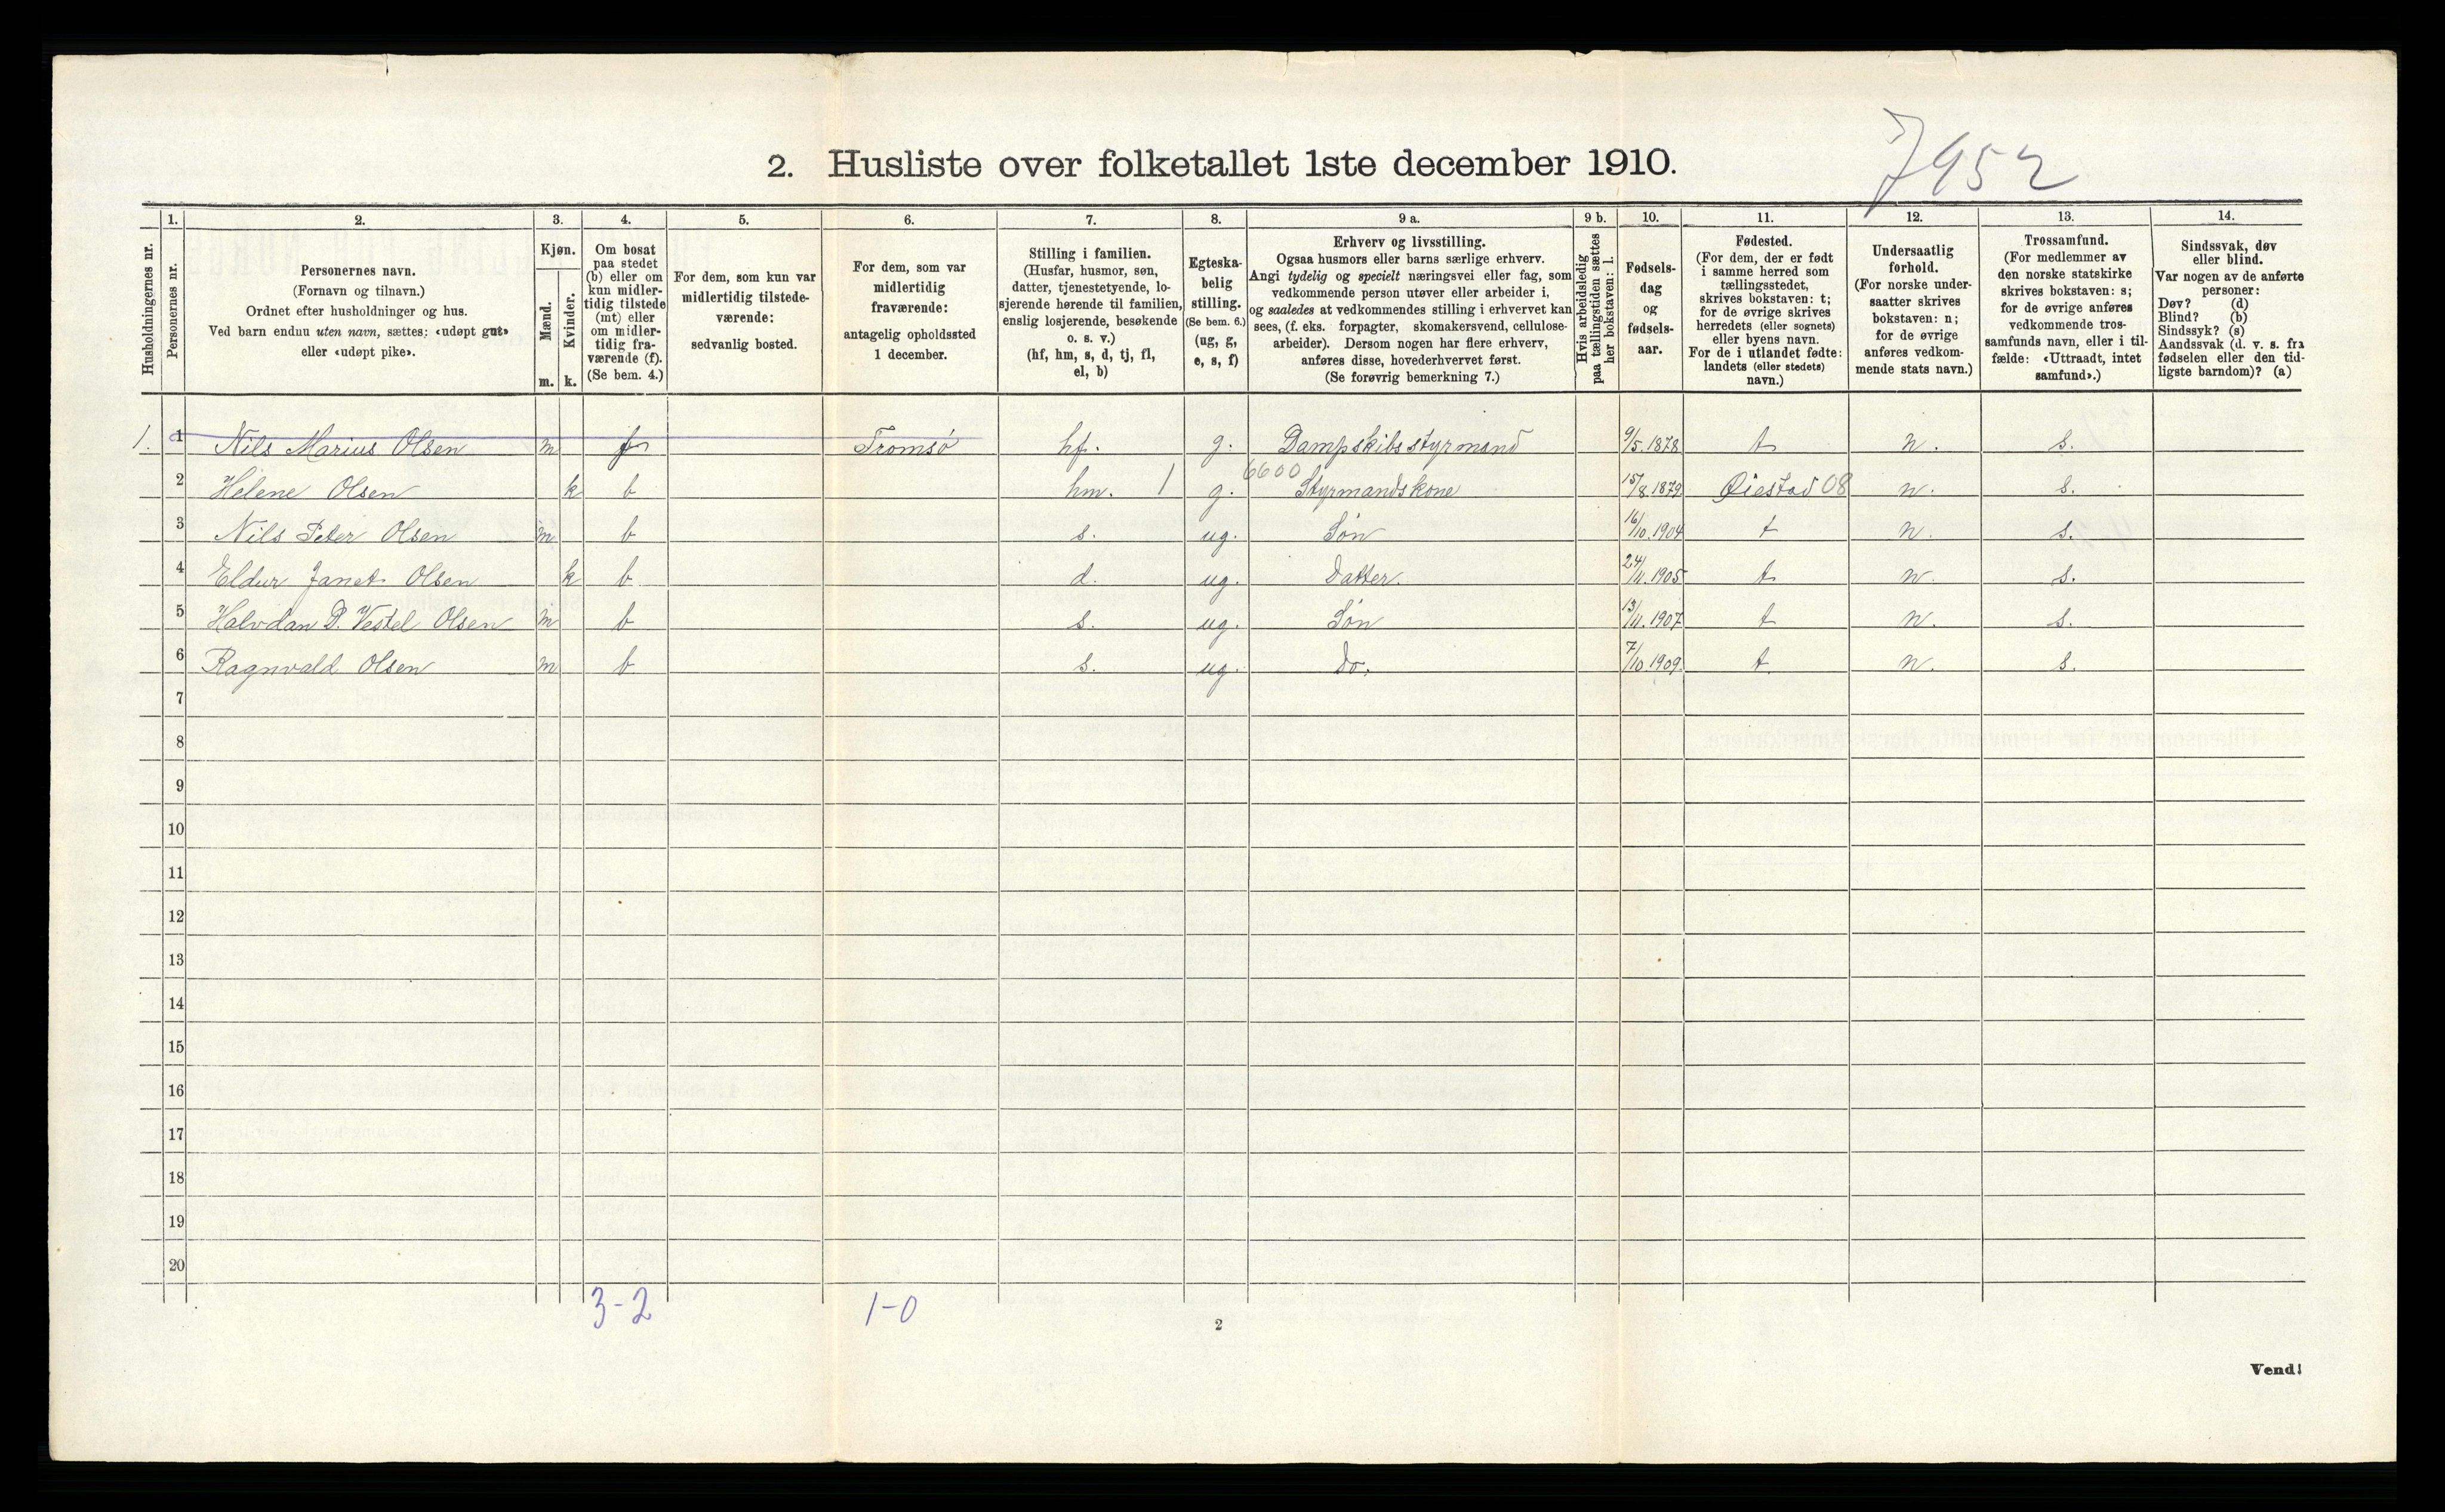 7952
2. Husliste over folketallet 1ste december 1910.
Husholdningernes nr.
1.
Personernes nr.
2.
Personernes navn.
(Fornavn og tilnavn.)
Ordnet efter husholdninger og hus.
Ved barn endnu uten navn, sættes: «udøpt gut»
eller «udøpt pike».
3.
Kjøn.
Mænd.
Kvinder.
m. k.
4.
Om bosat
paa stedet
(b) eller om
kun midler-
tidig tilstede
(mt) eller
om midler-
tidig fra-
værende (f).
(Se bem. 4.)
5.
For dem, som kun var
midlertidig tilstede-
værende:
sedvanlig bosted.
6.
For dem, som var
midlertidig
fraværende:
antagelig opholdssted
1 december.
7.
Stilling i familien.
(Husfar, husmor, søn,
datter, tjenestetyende, lo-
sjerende hørende til familien,
enslig losjerende, besøkende
o. s. v.)
(hf, hm, s, d, tj, fl,
el, b)
8.
Egteska-
belig
stilling.
(Se bem. 6.)
(ug, g,
e, s, f)
9 a.
Erhverv og livsstilling.
Ogsaa husmors eller barns særlige erhverv.
Angi tydelig og specielt næringsvei eller fag, som
vedkommende person utøver eller arbeider i,
og saaledes at vedkommendes stilling i erhvervet kan
sees, (f. eks. forpagter, skomakersvend, cellulose-
arbeider). Dersom nogen har flere erhverv,
anføres disse, hovederhvervet først.
(Se forøvrig bemerkning 7.)
9 b.
Hvis arbeidsledig
paa tællingstiden sættes
her bokstaven: l.
10.
Fødsels-
dag
og
fødsels-
aar.
11.
Fødested.
(For dem, der er født
i samme herred som
tællingsstedet,
skrives bokstaven: t;
for de øvrige skrives
herredets (eller sognets)
eller byens navn.
For de i utlandet fødte:
landets (eller stedets)
navn.)
12.
Undersaatlig
forhold.
(For norske under-
saatter skrives
bokstaven: n;
for de øvrige
anføres vedkom-
mende stats navn.)
13.
Trossamfund.
(For medlemmer av
den norske statskirke
skrives bokstaven: s;
for de øvrige anføres
vedkommende tros-
samfunds navn, eller i til-
fælde: «Uttraadt, intet
samfund».)
14.
Sindssvak, døv
eller blind.
Var nogen av de anførte
personer:
Døv? (d)
Blind? (b)
Sindssyk? (s)
Aandssvak (d. v. s. fra
fødselen eller den tid-
ligste barndom)? (a)
1. 1 Nils Marius Olsen m f Tromsø hf. g. Dampskibsstyrmand 9/5.1878 t n. s.
2 Helene Olsen k b hm. 1 g. 6600 Styrmandskone 15/8.1879 Øiestad 08 n. s.
3 Nils Peter Olsen m b s. ug. Søn 16/10.1904 t n. s.
4 Eldur Janet Olsen k b d. ug. Datter. 24/11.1905 t n. s.
5 Halvdan D. Vestel Olsen m b s. ug. Søn 13/11.1907 t n. s.
6 Ragnvald Olsen m b s. ug. Do. 7/10.1909. t. n. s.
7
8
9
10
11
12
13
14
15
16
17
18
19
20
3-2 1-0
2
Vend!